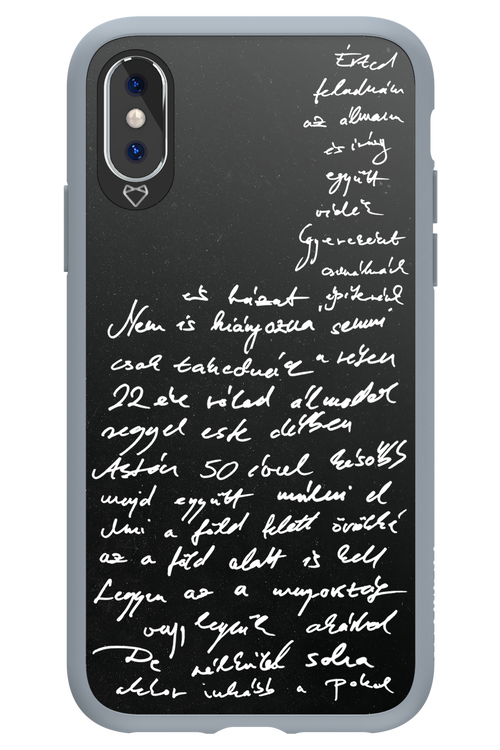 Érted
feladnám
az álmom
és irány
együtt
vidék
Gyerekeket
csinálnánk
és házat építenék
Nem is hiányozna semmi
csak
22 éve rólad álmodok
reggel este délben
Aztán 50 évvel később
majd együtt múlni el
Ami a föld felett örökké
az a föld alatt is kell
Legyen az a mennyország
vagy legyünk akárhol
De nélküled soha
akkor inkább a Pokol